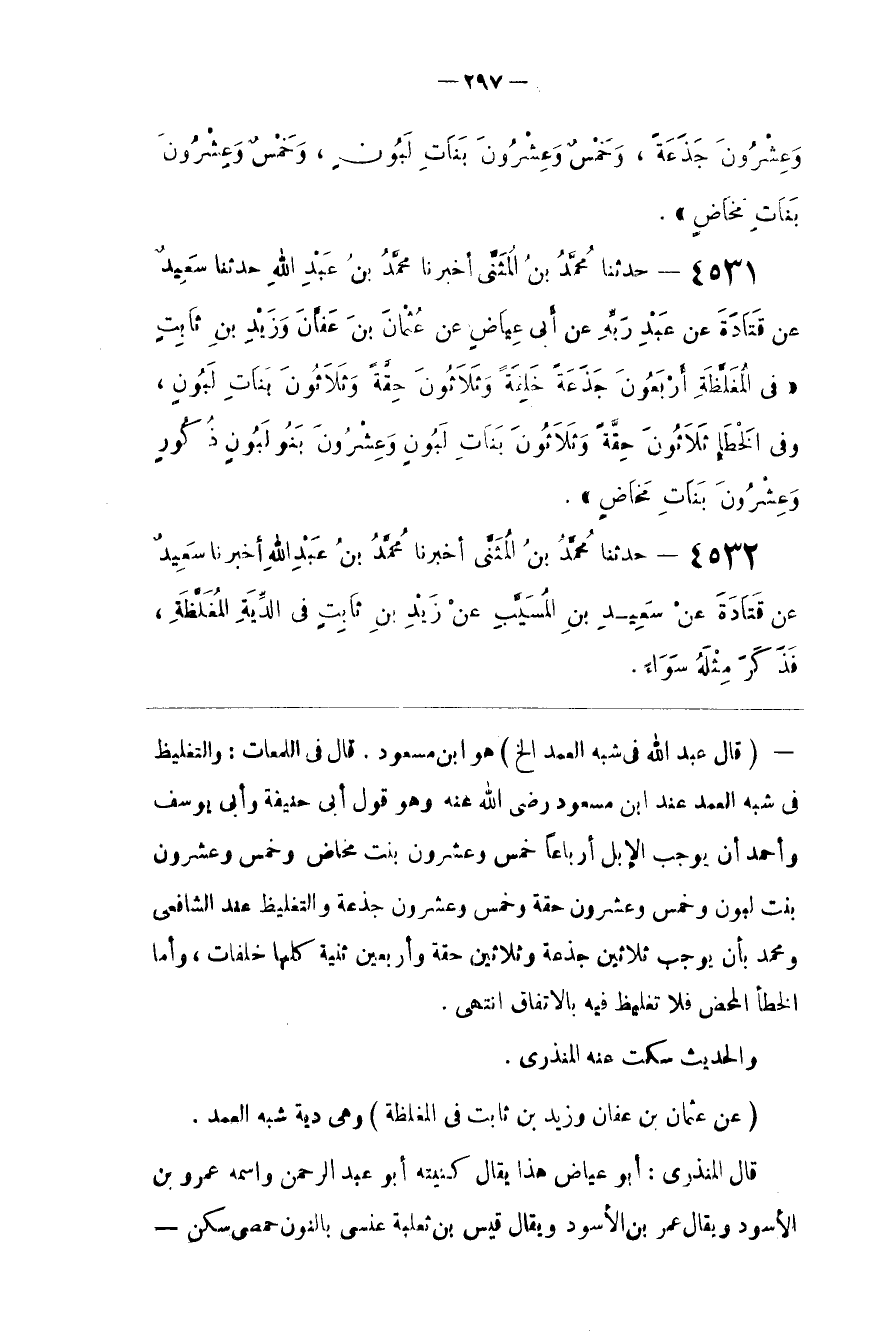 — ٢٩٧ —
وَعِشْرُونَ جَذَعَةً ، وَخَمْسٌ وَعِشْرُونَ بَنَاتِ لَبُونٍ ، وَخَمْسٌ وَعِشْرُونَ
بَنَاتِ مَخَاضٍ » .
٤٥٣١ — حدثنا مُحمَّدُ بنُ الْمُثَنَّى أخبرنا مُحمَّدُ بنُ عَبْدِ اللهِ حدثنا سَعِيدٌ
عن قَتَادَةَ عن عَبْدِ رَبِّهِ عن أَبى عِيَاضٍ عن عُثْمَانَ بنَ عَفَّانَ وَزَيْدِ بنِ ثَابِتٍ
« فى الْمُغَلَّظَةِ أَرْبَعُونَ جَذَعَةً خَلِفَةً وَثَلَاثُونَ حِقَّةً وَثَلَاثُونَ بَنَاتِ لَبُونٍ ،
وفى الْخَطَإِ ثَلَاثُونَ حِقَّةً وَثَلَاثُونَ بَنَاتِ لَبُونٍ وَعِشْرُونَ بَنُو لَبُونٍ ذُكُورٍ
وَعِشْرُونَ بَنَاتِ مَخَاضٍ » .
٤٥٣٢ — حدثنا مُحمَّدُ بنُ الْمُثَنَّى أخبرنا مُحمَّدُ بنُ عَبْدِ اللهِ أخبرنا سَعِيدٌ
عن قَتَادَةَ عنْ سَعِيدِ بنِ الْمُسَيَّبِ عنْ زَيْدِ بنِ ثَابِتٍ فى الدِّيَةِ الْمُغَلَّظَةِ ،
فَذَكَرَ مِثْلَهُ سَوَاءَ .
— ( قال عبد الله فى شبه العمد الخ ) هو ابن مسعود . قال فى اللمعات : والتغليظ
فى شبه العمد عند ابن مسعود رضى الله عنه وهو قول أبى حنيفة وأبى يوسف
وأحمد أن يوجب الإبل أرباعاً خمس وعشرون بنت مخاض وخمس وعشرون
بنت لبون وخمس وعشرون حقة وخمس وعشرون جذعة والتغليظ عند الشافعى
ومحمد بأن يوجب ثلاثين جذعة وثلاثين حقة وأربعين ثنية كلها خلفات ، وأما
الخطأ المحض فلا تغليظ فيه بالاتفاق انتهى .
والحديث سكت عنه المنذرى .
( عن عثمان بن عفان وزيد بن ثابت فى المغلظة ) وهى دية شبه العمد .
قال المنذرى : أبو عياض هذا يقال كنيته أبو عبد الرحمن واسمه عمرو بن
الأسود ويقال عمر بن الأسود ويقال قيس بن ثعلبة عنسى بالنون حمصى سكن —